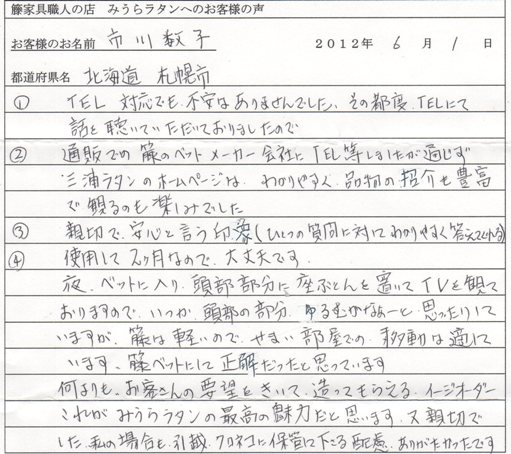 籐家具職人の店 みうらラタンへのお客様の声
お客様のお名前 市川数子 2012年 6月 1日
都道府県名 北海道 札幌市
① TEL 対応でも不安はありませんでした。その都度、TELにて
話を聴いていただいておりましたので
② 通販での 籐のベットメーカー会社に TEL等しましたが通じず
三浦ラタンのホームページは、わかりやすく、品物の紹介も豊富
で観るのも楽しみでした
③ 親切で、安心と言う印象(ひとつの質問に対してわかりやすく答えてくれる)
④ 使用して2ヶ月なので、大丈夫です。
夜、ベットに入り、頭部部分に座ぶとんを置いてTVを観て
おりますので、いつか、頭部の部分、ゆるむかなぁーと、思ったりして
いますが、籐は軽いので、せまい部屋での、移動は適して
います、籐ベットにして正解だったと思っています
何よりも、お客さんの要望をきいて、造ってもらえる、イージオーダー
これがみうらラタンの最高の魅力だと思います。又親切で
した、私の場合も、引越、クロネコに保管に下さる配慮、ありがたかったです